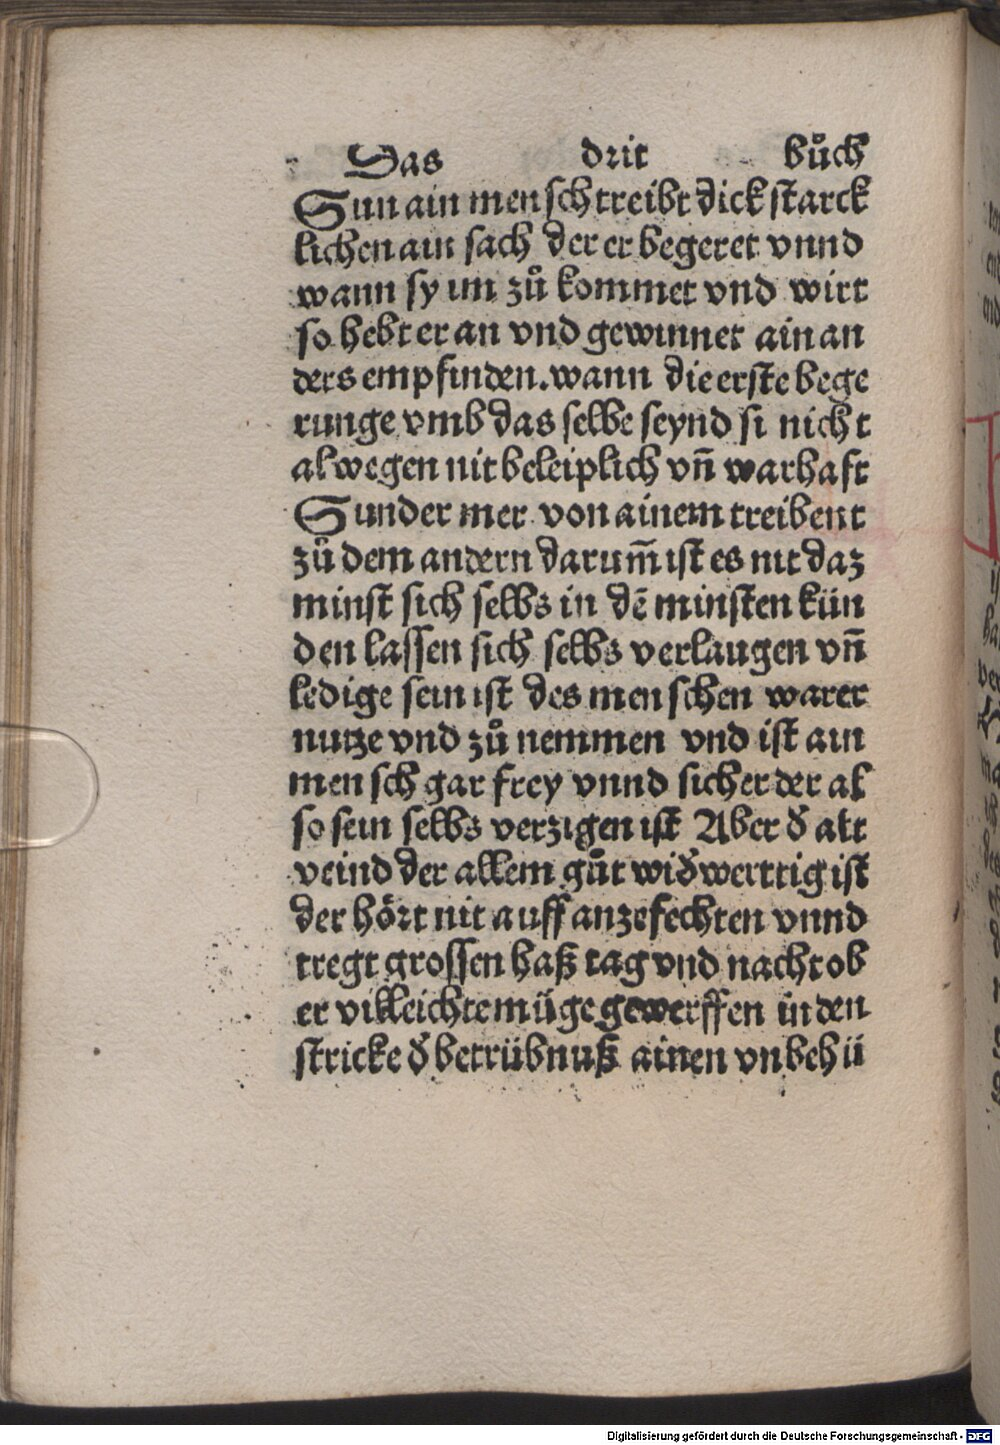 Das drit bůch
Sun ain mensch treibt dick starck
lichen ain sach der er begeret vnnd
wann sy im zů kommet vnd wirt
so hebt er an vnd gewinnet ain an
ders empfinden. wann die erste bege
runge vmb das selbe seynd si nicht
alwegen nit beleiplich vn̄ warhaft
Sunder mer von ainem treibent
zů dem andern darum̄ ist es nit daz
minst sich selbs in dē minsten kün
den lassen sich selbs verlaugen vn̄
ledige sein ist des menschen warer
nutze vnd zů nemmen vnd ist ain
mensch gar frey vnnd sicher der al
so sein selbs verzigen ist Aber d̕ alt
veind der allem gůt wid̕werttig ist
der hört nit auff anzefechten vnnd
tregt grossen haß tag vnd nacht ob
er villeichte müge gewerffen in den
stricke d̕ betrübnuß ainen vnbehü
Digitalisierung gefördert durch die Deutsche Forschungsgemeinschaft - DFG